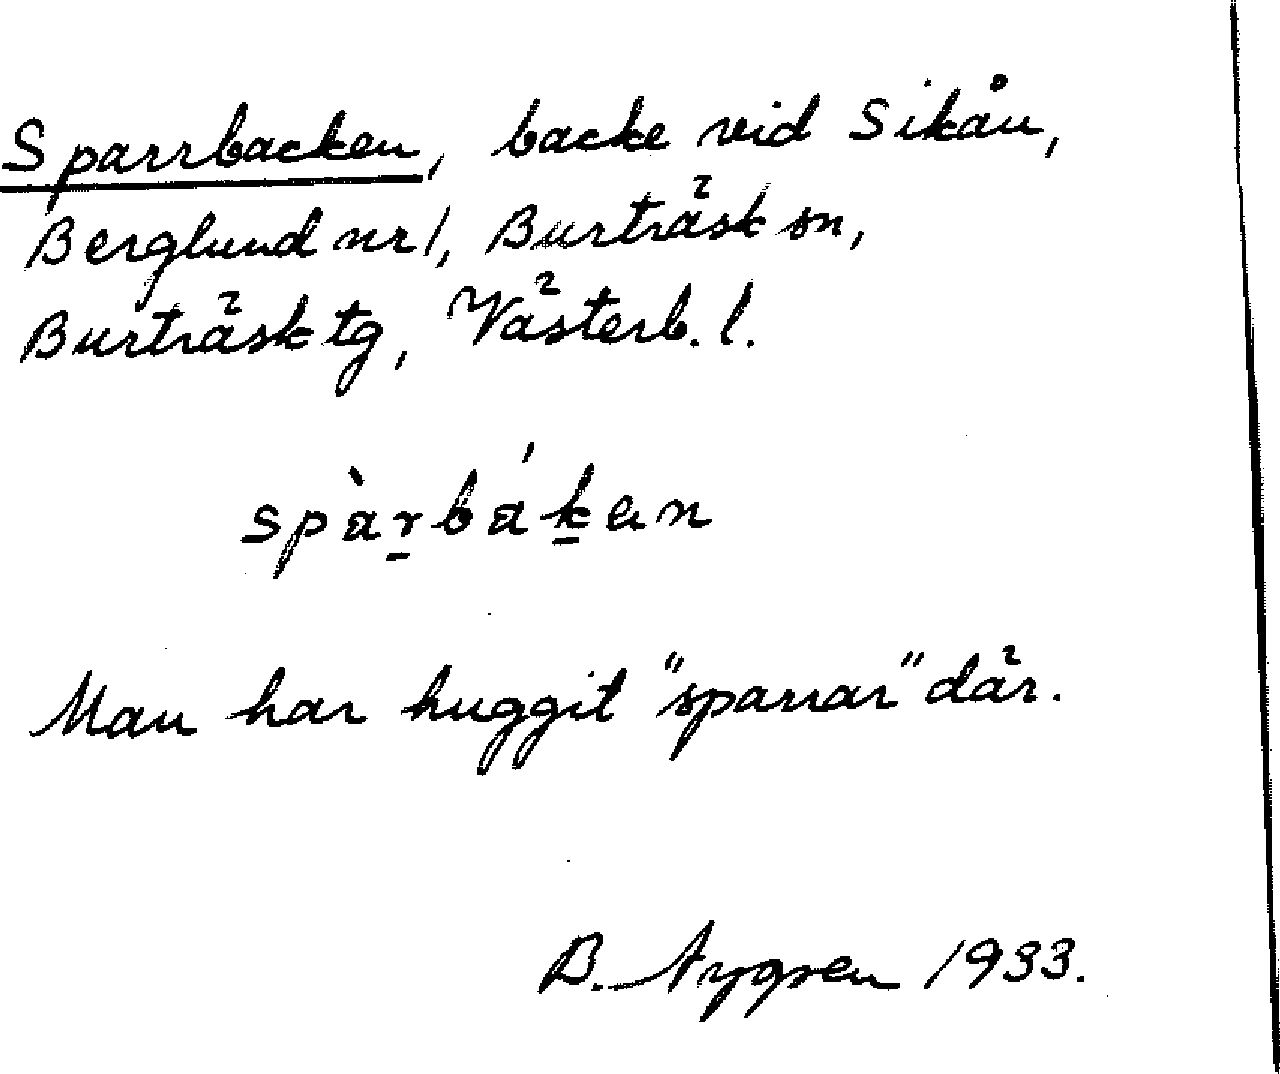 Sparrbacken, backe vid Sikån,
Berglund nr 1, Burträsk sn,
Burträsk tg, Västerb. l.
spàr̠bák̠an
Man har huggit "sparrar" där.
B. Nygren 1933.